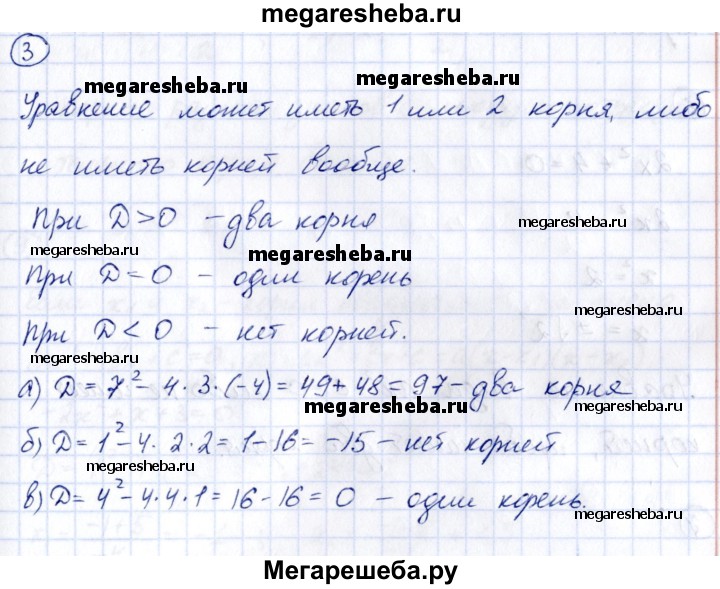 megaresheba.ru
3
megaresheba.ru megaresheba.ru
Уравнение может иметь 1 или 2 корня, либо
не иметь корней вообще.
При D>0 - два корня megaresheba.ru
megaresheba.ru megaresheba.ru
При D=0 - один корень
megaresheba.ru
При D<0 - нет корней.
megaresheba.ru
а) D = 7² - 4·3·(-4) = 49 + 48 = 97 - два корня
megaresheba.ru
б) D = 1² - 4·2·2 = 1 - 16 = -15 - нет корней
megaresheba.ru
в) D = 4² - 4·4·1 = 16 - 16 = 0 - один корень.
megaresheba.ru
Мегарешеба.ру